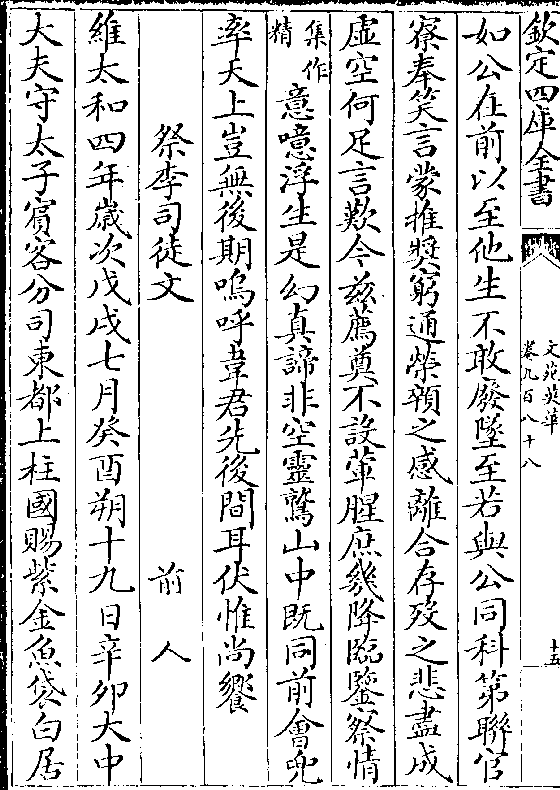 欽定四庫全書
文苑英華
卷九百八十八
十五
如公在前以至他生不敢廢墜至若與公同科第聯官
寮奉笑言蒙推奬窮通榮顇之感離合存歿之悲盡成
虛空何足言歎今兹薦奠不設葷腥庶幾降臨鑒察情
集作
精
意噫浮生是幻真諦非空靈鷲山中既同前會兜
率天上豈無後期嗚呼韋君先後間耳伏惟尚饗
祭李司徒文 前人
維太和四年歲次戊戌七月癸酉朔十九日辛卯大中
大夫守太子賓客分司東都上柱國賜紫金魚袋白居